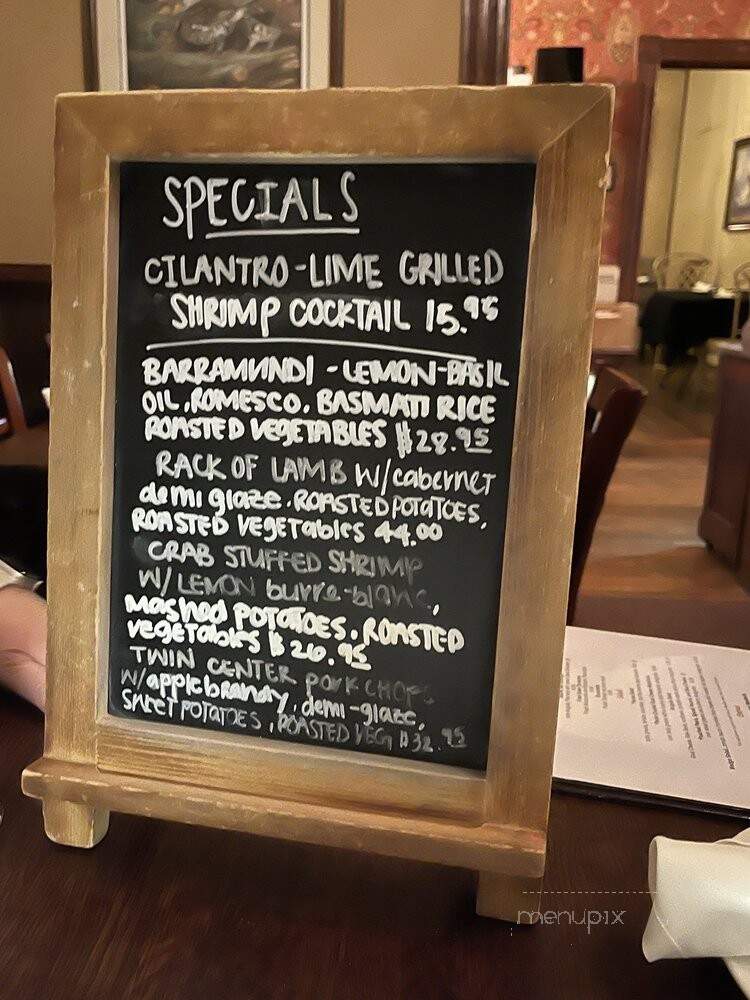 SPECIALS
CILANTRO-LIME GRILLED
SHRIMP COCKTAIL 15.95
BARRAMUNDI - LEMON-BASIL
OIL, ROMESCO, BASMATI RICE
ROASTED VEGETABLES $28.95
RACK OF LAMB W/cabernet
demi glaze, ROASTED POTATOES,
ROASTED VEGETABLES 44.00
CRAB STUFFED SHRIMP
W/ LEMON burre-blanc,
MASHED POTATOES, ROASTED
VEGETABLES $26.95
TWIN CENTER PORK CHOPS
W/apple brandy, demi-glaze,
SWEET POTATOES, ROASTED VEG $32.95
menupix